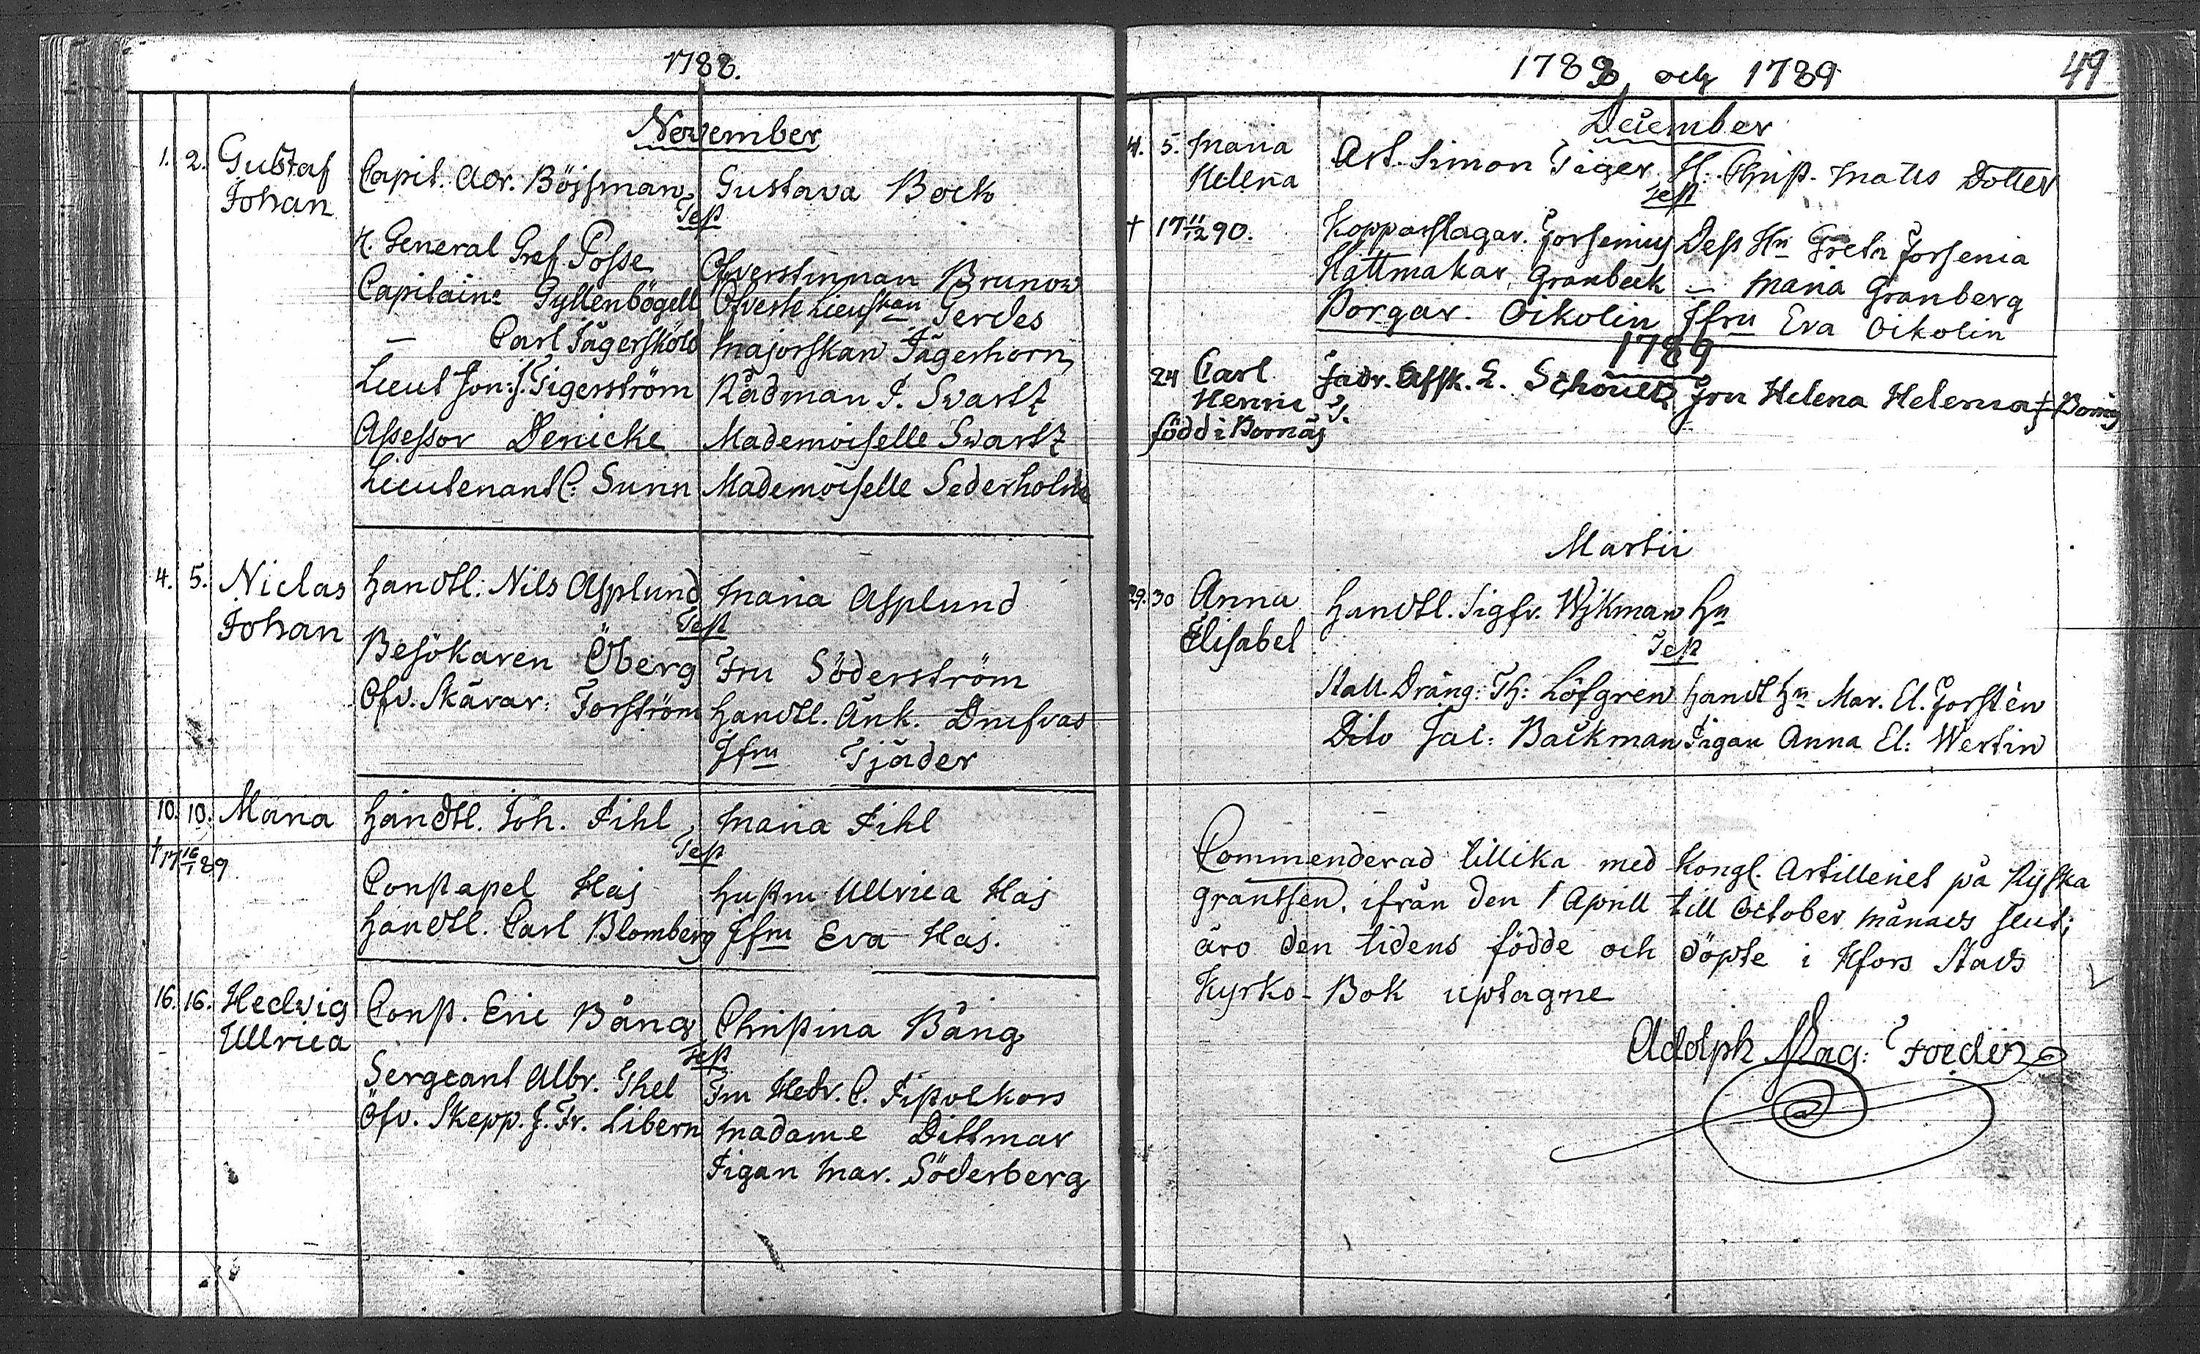 1788.
November
1. 2. Gustaf Capit. Adr. Böjsman, Gustava Bock
Johan
Test
H. General Gref Posse Öfverstinnan Brunow
Capitaine Gyllenbögell Öfverste Lieutskan Gerdes
— Carl Jägersköld Majorskan Jägerhorn
Lieut Jon: J. Tigerström Rådman J. Svartz
Assessor Denicke Mademoiselle Svartz
Lieutenant C. Sunn Mademoiselle Sederholm
4. 5. Niclas Handtl: Nils Asplund Maria Asplund
Johan
Test
Besökaren Öberg Fru Söderström
Öfv. Skärar: Forström Handtl. Änk. Drufvas
Jfru Tjäder
10. 10. Maria Handtl. Joh. Fihl, Maria Fihl
† 17 16/1 89
Test
Constapel Haj Hustru Ullrica Haj
Handtl. Carl Blomberg Jfru Eva Haj.
16. 16. Hedvig Const. Eric Bång Christina Bång
Ullrica
Test
Sergeant Albr. Thel Fru Hedv. C. Fistolkors
Öfv. Skepp. J. Fr. Libern Madame Dittmar
Pigan Mar. Söderberg
1788 och 1789 49
December
4. 5. Maria Art. Simon Tiger H. Christ. Matts Dotter
Helena
Test
† 17 11/12 90. Kopparslagar. Forsenius Dess Hu Greta Forsenia
Hattmakar. Granbeck — Maria Granberg
Borgar. Oikolin Jfru Eva Oikolin
1789
24 Carl Fadr. Affsk. L. Schoultz Fru Helena Helenia f. Bornäs
Henric
född i Bornäs
Martii
29. 30 Anna Handtl. Sigfr. Wikman Hu
Elisabet
Test
Stall. Dräng: Th: Löfgren Handl Hu Mar. El. Forstén
Dito Jac: Backman Pigan Anna El: Wertin
Commenderad tillika med Kongl. Artilleriet på Ryska
grantsen, ifrån den 1 Aprill till October månads slut;
äro den tidens födde och döpte i Hfors Stads
Kyrko-Bok uptagne
Adolph Mag: